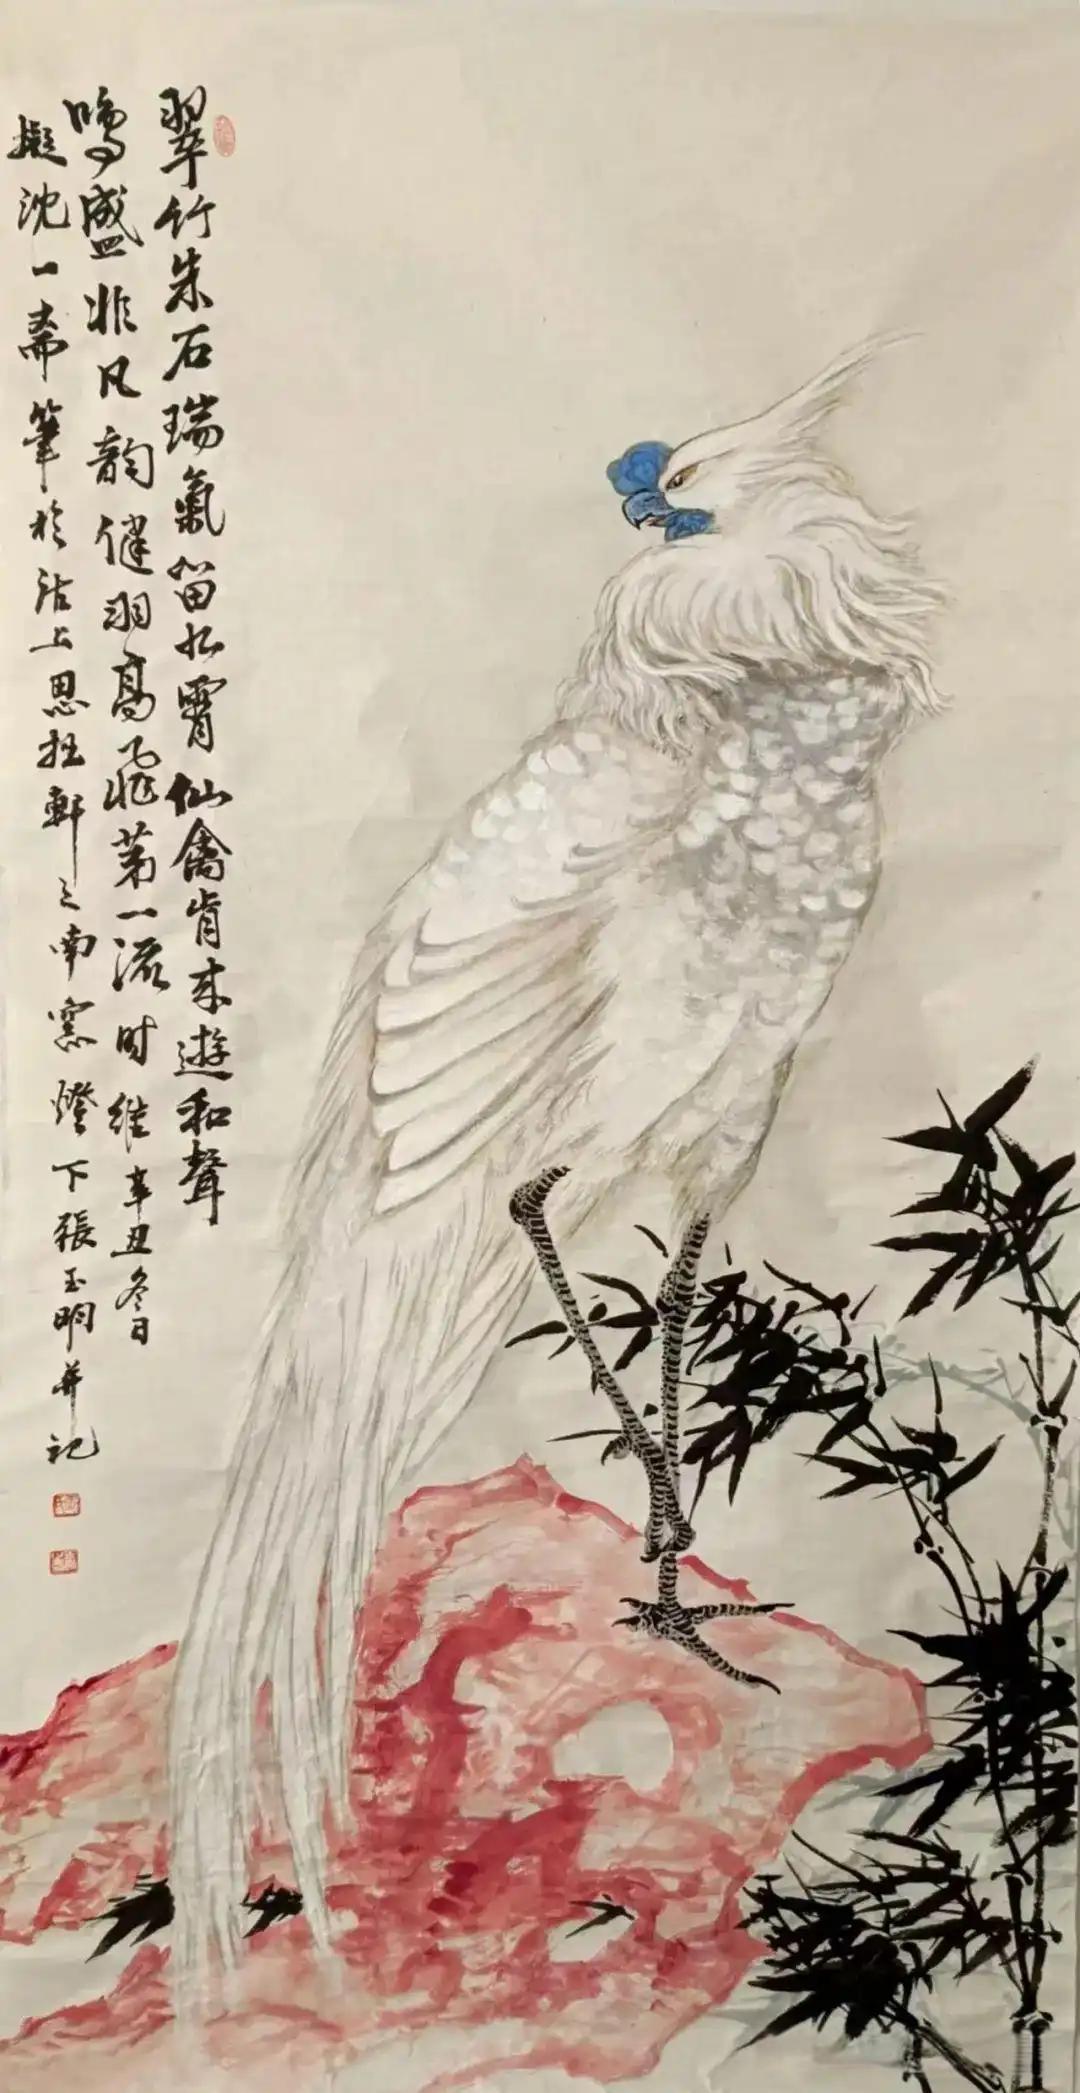 翠竹朱石瑞氣留九霄仙禽肯來遊和聲
鳴盛非凡韵健羽高飛第一流时維辛丑冬日
擬沈一齋筆於沽上思拙軒之南窓燈下張玉明并记